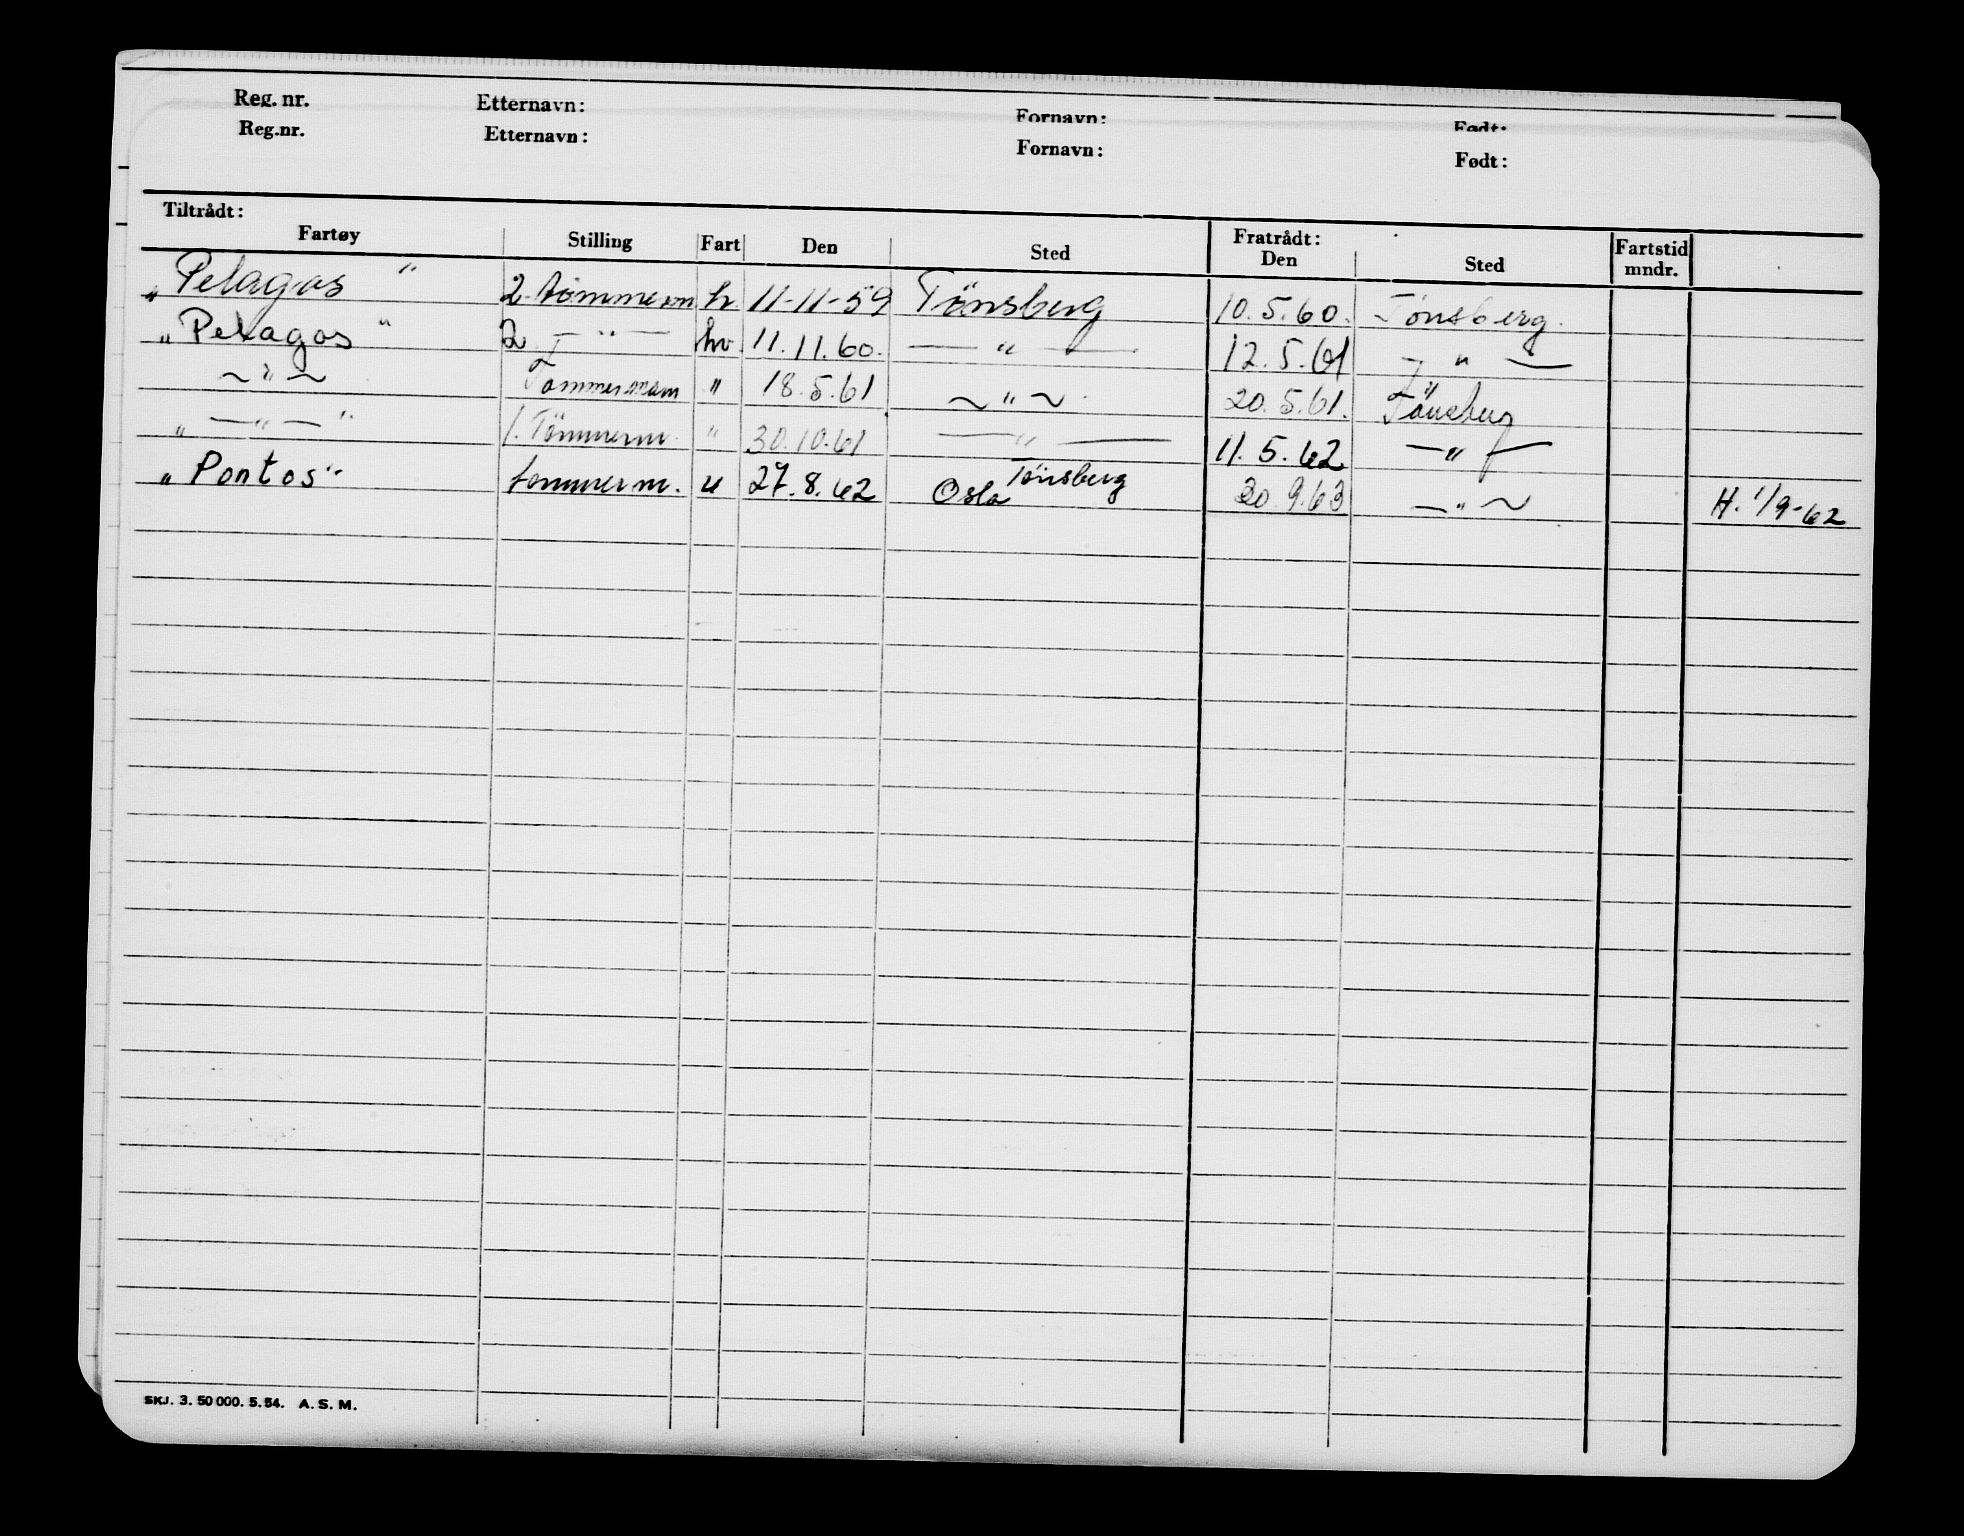 Reg. nr. Etternavn: Fornavn: Født:
Reg.nr. Etternavn: Fornavn: Født:
Tiltrådt: Fratrådt:
Fartøy Stilling Fart Den Sted Den Sted Fartstid mndr.
„Pelagos" 2. tømmerm h. 11-11-59 Tönsberg 10.5.60. Tönsberg.
„Pelagos" 2 T — " — hv. 11.11.60. — " — 12.5.61 — " —
~ " ~ Tømmermann " 18.5.61 ~ " ~ 20.5.61. Tönsberg
„ — " — " 1. Tömmerm. " 30.10.61 — " — 11.5.62 — " —
„Pontos" tømmerm. u 27.8.62 Oslo Tönsberg 30.9.63 — " ~ H. 1/9-62
SKJ. 3. 50 000. 5.54. A. S. M.